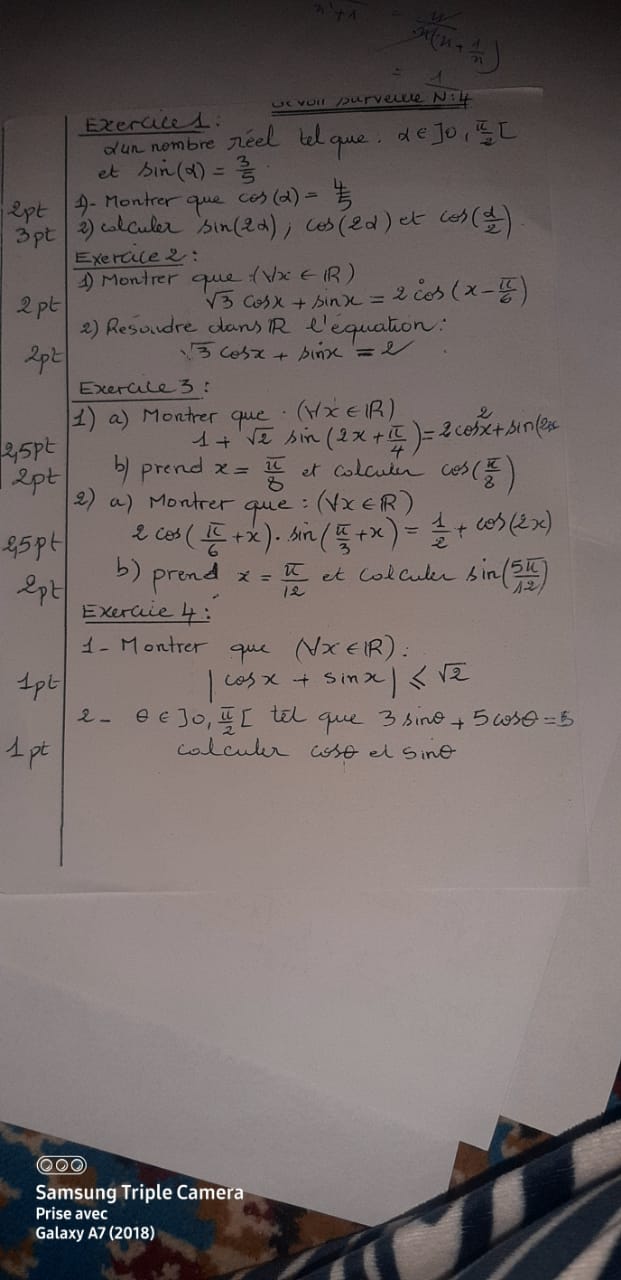 x²+1 = x / x(x + 1/x)
= 1
Devoir surveillé N:4
Exercice 1:
α un nombre réel tel que : α ∈ ]0, π/2[
et sin(α) = 3/5
2pt 1)- Montrer que cos(α) = 4/5
3pt 2) calculer sin(2α) ; cos(2α) et cos(α/2).
Exercice 2:
1) Montrer que : (∀x ∈ IR)
2pt √3 cosx + sinx = 2 cos(x - π/6)
2) Resoudre dans IR l'équation:
2pt √3 cosx + sinx = 2
Exercice 3:
1) a) Montrer que : (∀x ∈ IR)
2,5pt 1 + √2 sin(2x + π/4) = 2cos²x + sin(2x
2pt b) prend x = π/8 et calculer cos(π/8)
2) a) Montrer que : (∀x ∈ IR)
2,5pt 2 cos(π/6 + x). sin(π/3 + x) = 1/2 + cos(2x)
2pt b) prend x = π/12 et calculer sin(5π/12)
Exercie 4:
1- Montrer que (∀x ∈ IR):
1pt |cosx + sinx| ⩽ √2
2- θ ∈ ]0, π/2[ tel que 3 sinθ + 5 cosθ = 5
1pt calculer cosθ et sinθ
Samsung Triple Camera
Prise avec
Galaxy A7 (2018)